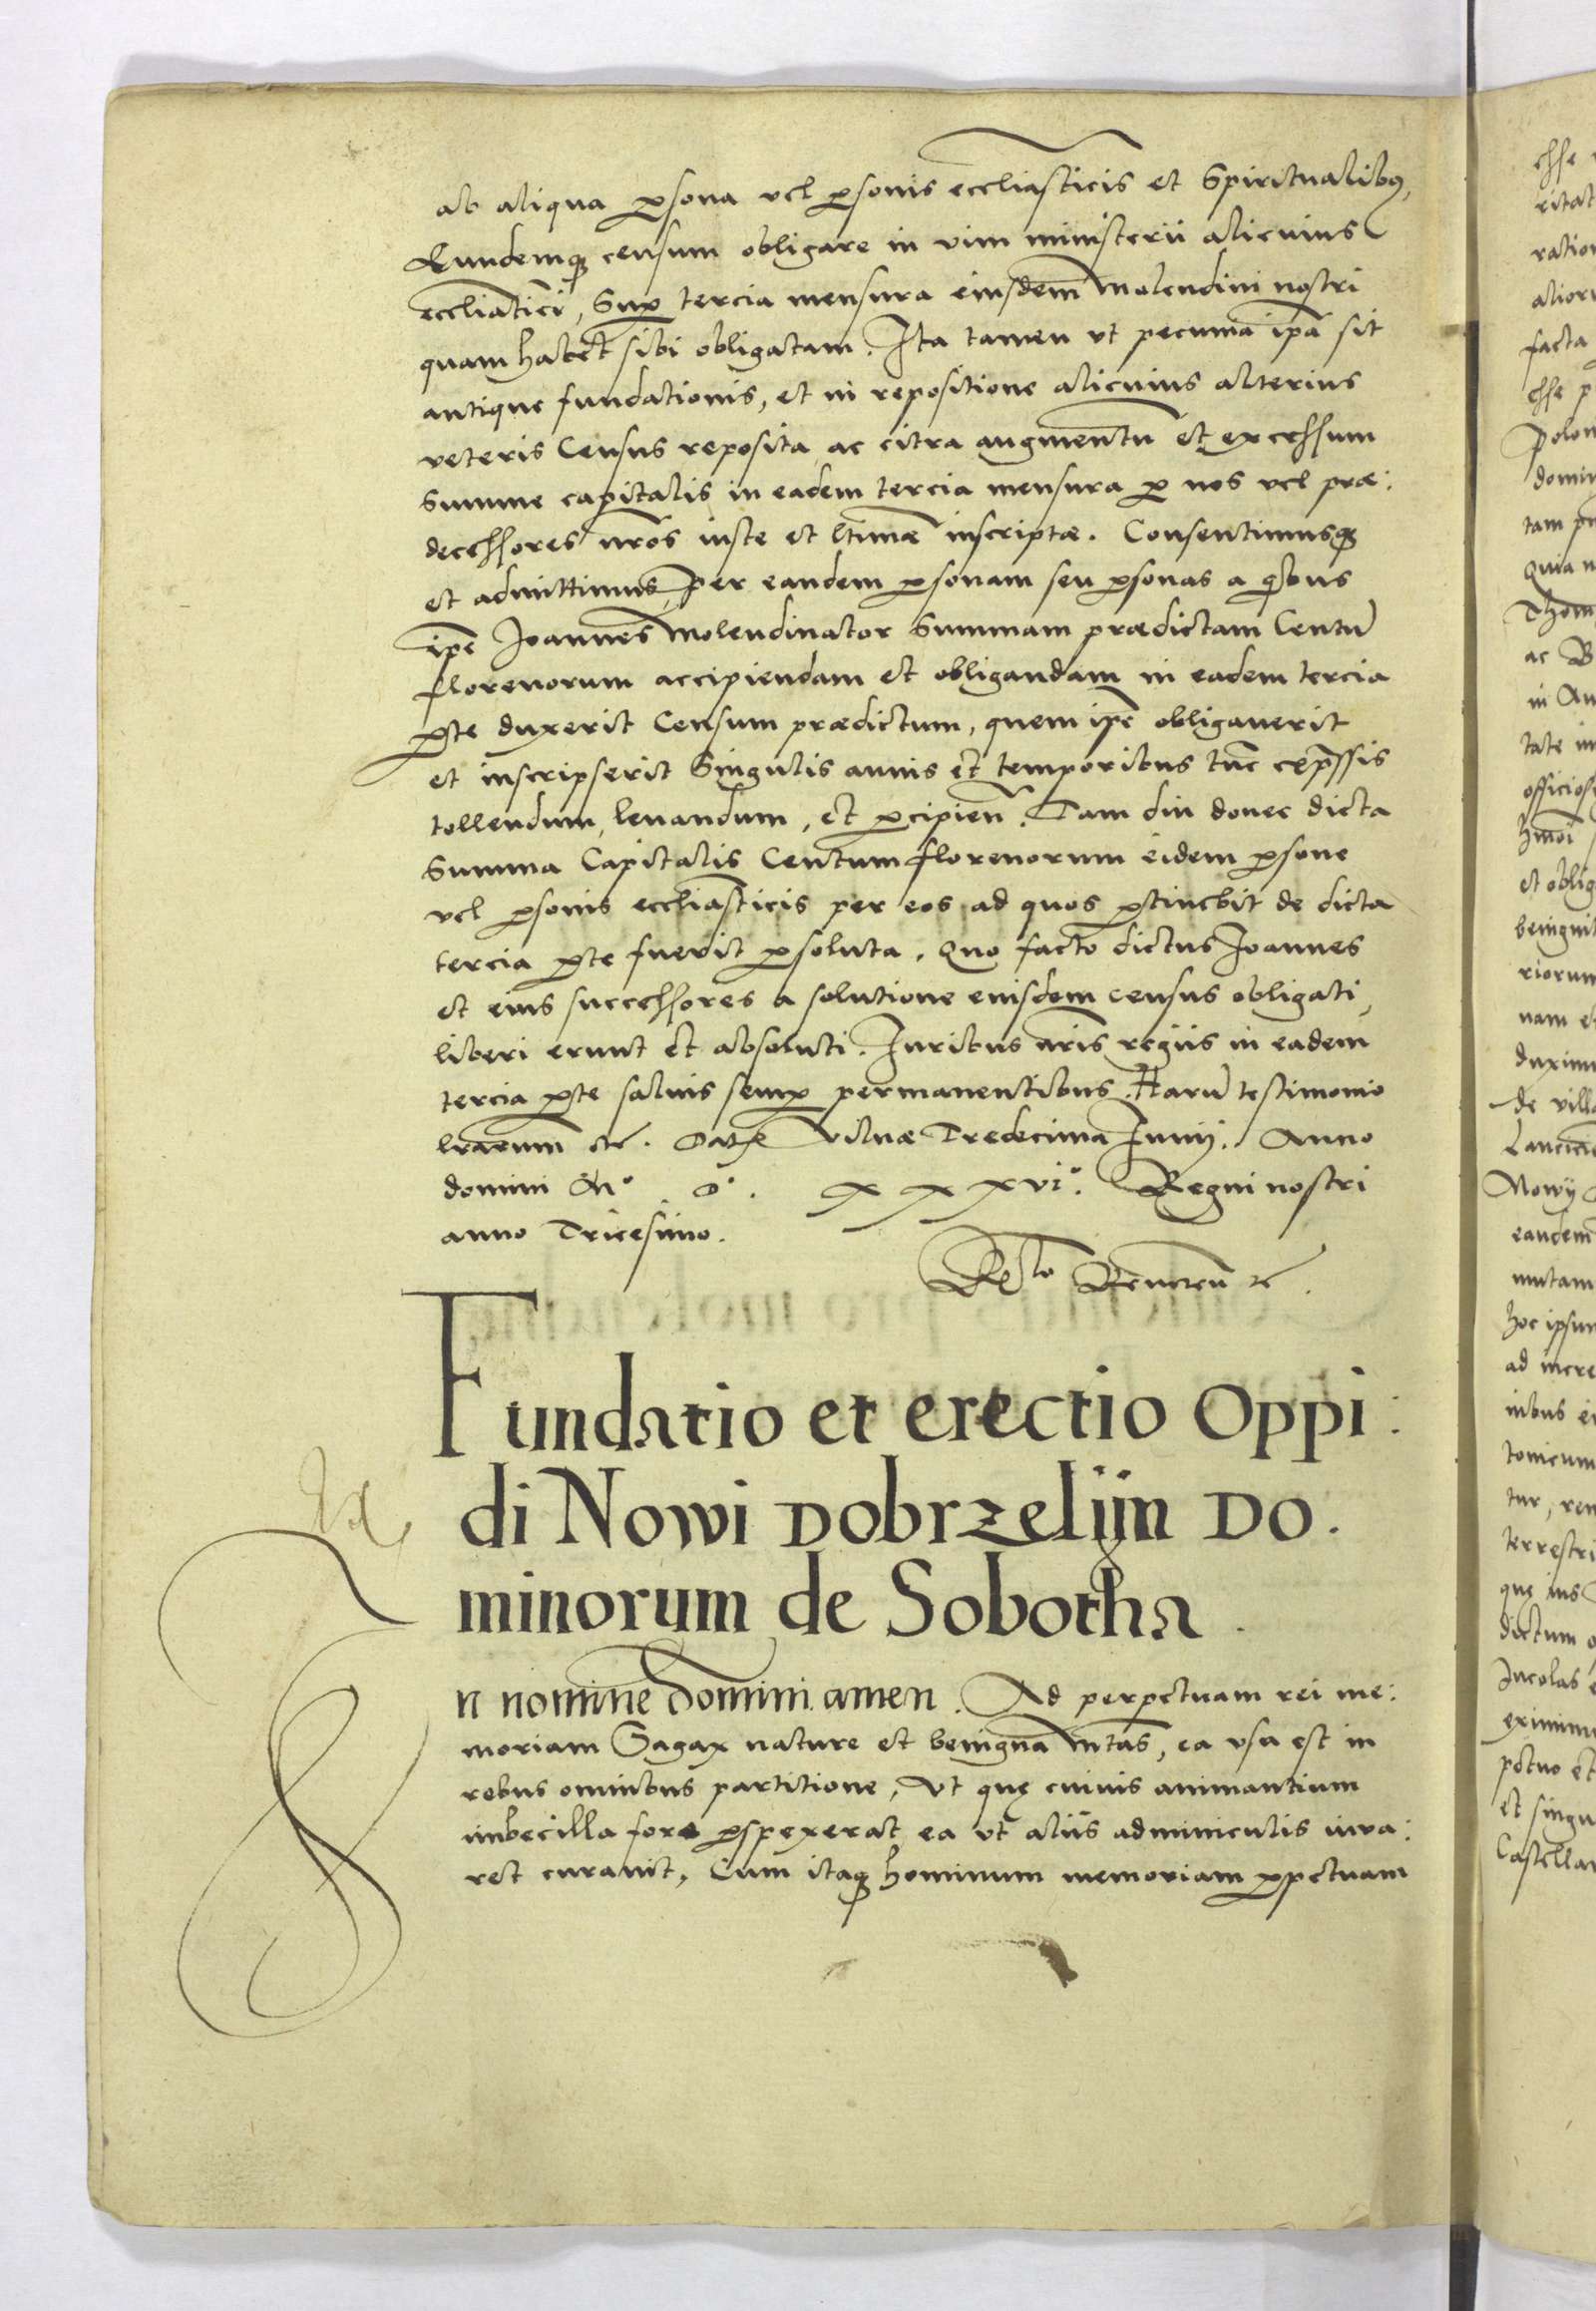 ab aliqua psona vel psonis eccliasticis et Spiritualibus,
Eundemq censum obligare in vim ministerii alicuius
eccliatici, Sup tercia mensura eiusdem molendini nostri
quam habet sibi obligatam. Ita tamen vt pecunia ipa sit
antique fundationis, et in repositione alicuius alterius
veteris Census reposita ac citra augmentu et excessum
summe capitalis in eadem tercia mensura p nos vel præ:
decessores nros iuste et ltimæ inscriptæ. Consentimusq
et admittimus, per eandem psonam seu psonas a qbus
ipe Joannes molendinator Summam prædictam Centu
florenorum accipiendam et obligandam in eadem tercia
pte duxerit Censum prædictum, quem ipe obligauerit
et inscripserit Singulis annis et temporibus tuc expssis
tollendum, leuandum, et pcipien. Tam diu donec dicta
Summa Capitalis Centum florenorum eidem psone
vel psonis eccliasticis per eos ad quos ptinebit de dicta
tercia pte fuerit psoluta. Quo facto dictus Joannes
et eius successores a solutione eiusdem census obligati,
liberi erunt et absoluti. Juribus nris regiis in eadem
tercia pte saluis semp permanentibus. Haru testimonio
lrarum etc. Dat Vilnæ Tredecima Junij. Anno
domini Mo. Do. xxxvio. Regni nostri
anno Tricesimo.
Fundatio et erectio Oppi:
di Nowi Dobrzelijn Do.
minorum de Sobotha.
n nomine domini amen. Ad perpetuam rei me:
moriam Sagax nature et benigna mtas, ea vsa est in
rebus omnibus partitione, Vt quę cuiuis animantium
imbecilla fore pspexerat ea vt aliis adminiculis iuua:
ret curauit, Cum itaq hominum memoriam ppetuam